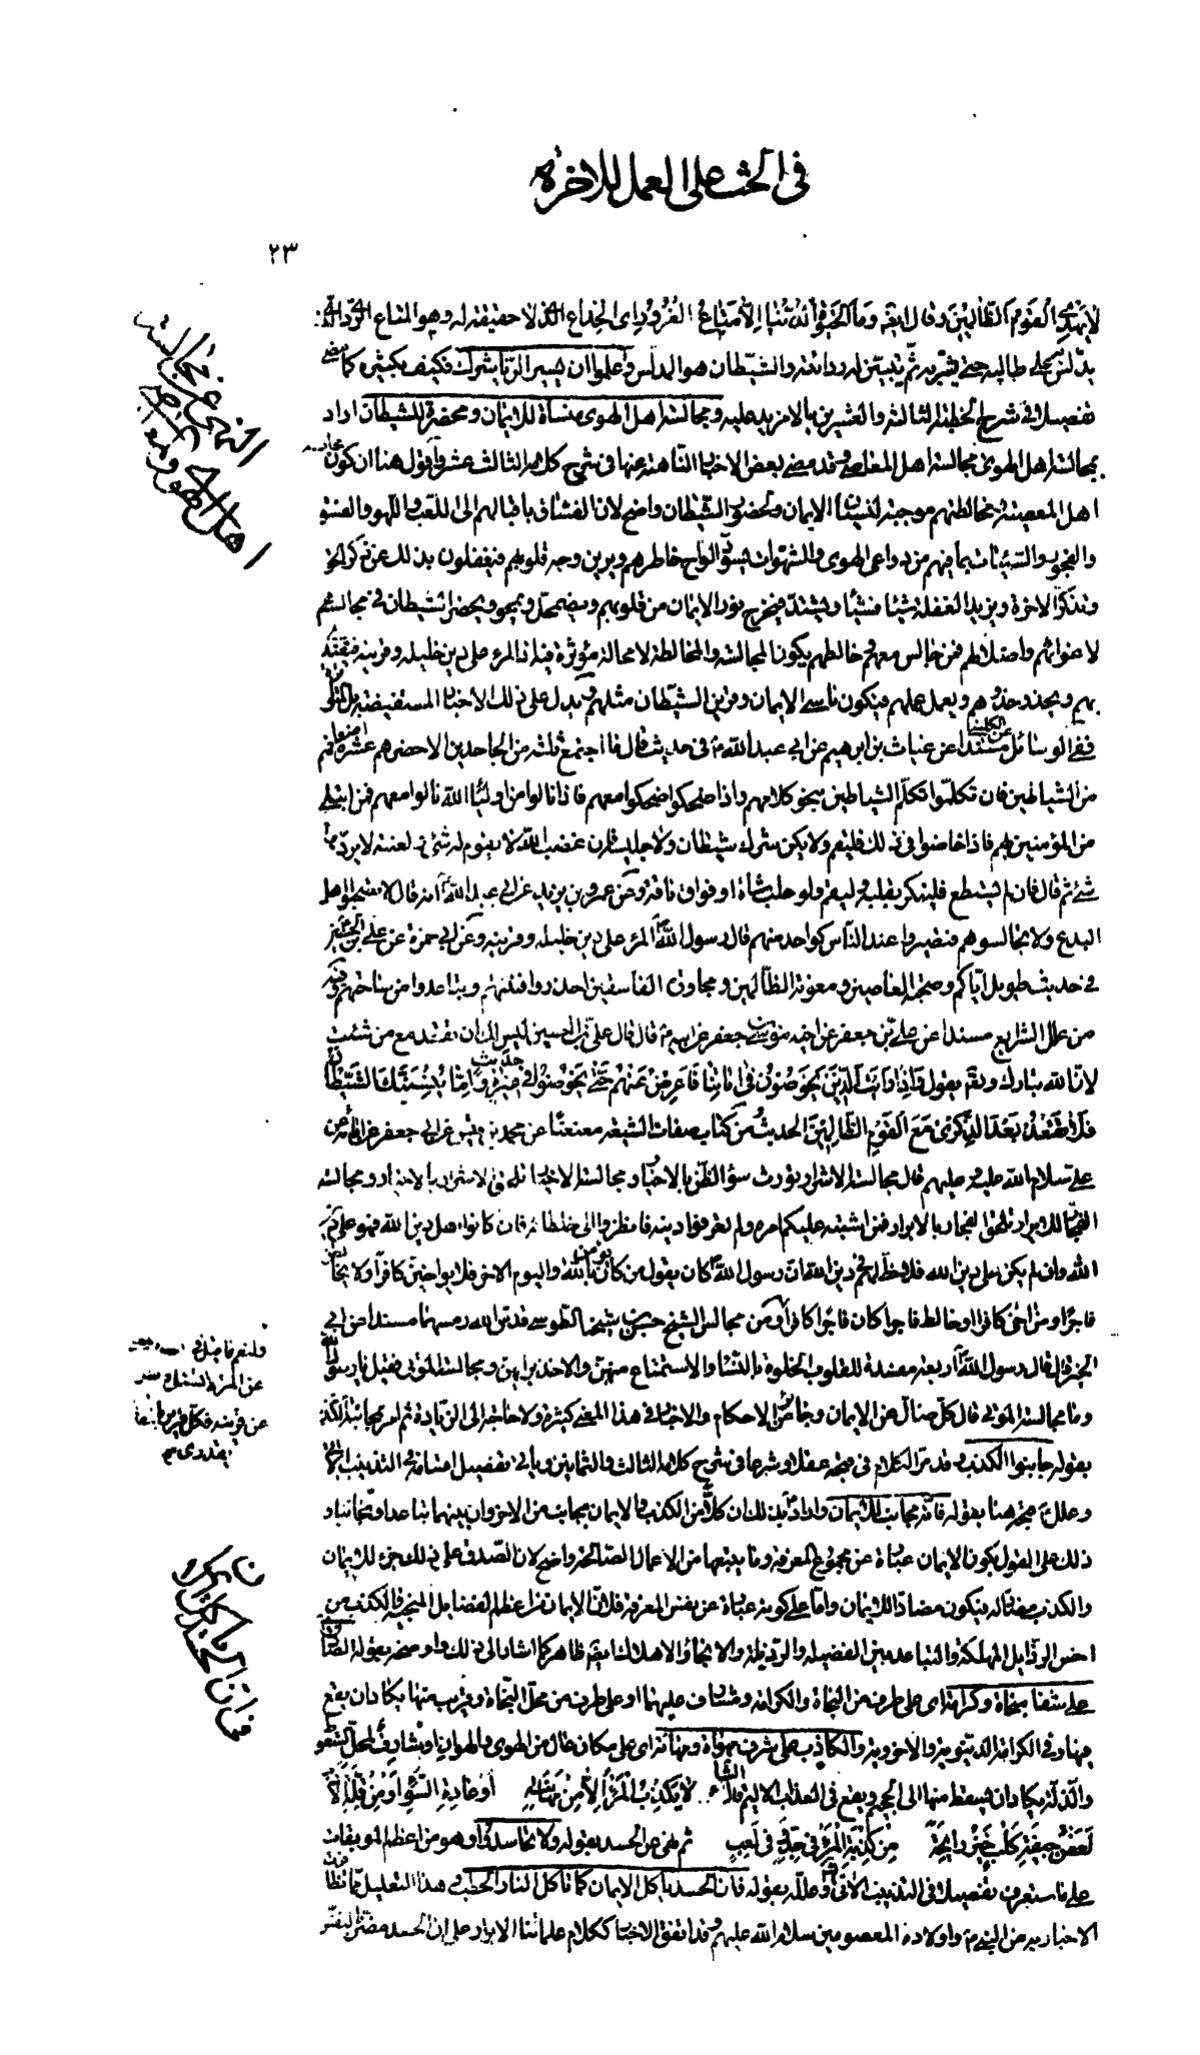 في الحث على العمل للاخرة
٢٣
لا يهدي القوم الظالمين وقال ايضا وما الحيوة الدنيا الا متاع الغرور اى الخداع الذي لا حقيقة له وهو المتاع الردى الذي
يدلس به على طالبه حتى يشتريه ثم يتبين له ردائته والشيطان هو المدلس واعلموا ان يسير الريا شرك فكيف بكثيره كما مضى
تفصيلا في شرح الخطبة الثالثة والعشرين بما لا مزيد عليه ومجالسة اهل الهوى منساة للايمان ومحضرة للشيطان اراد
بمجالسة اهل الهوى مجالسة اهل المعاصى وقد مضى بعض الاخبار الناهية عنها في شرح كلامه الثالث عشر واقول هنا ان كون
اهل المعصية ومخالطتهم موجبة لنسيان الايمان ولحضور الشيطان واضح لان الفساق باقبالهم الى اللعب واللهو والفسق
والفجور والسيئات بما فيهم من دواعى الهوى والشهوات يسود الواح خاطرهم ويرين وجه قلوبهم فيغفلون بذلك عن ذكر الحق
وتذكر الاخرة ويزيد الغفلة شيئا فشيئا ويشتد فيخرج نور الايمان من قلوبهم ويضمحل ويمحو ويحضر الشيطان في مجالسهم
لاغوائهم واضلالهم فمن جالس معهم وخالطهم يكون المجالسة والمخالطة لا محالة مؤثرة فيه اذ المرء على دين خليله وقرينه فيقتدى
بهم ويحذو حذوهم ويعمل عملهم فيكون ناسى الايمان وقرين الشيطان مثلهم ويدل على ذلك الاخبار المستفيضة بل المتواترة
ففى الوسائل عن الكلينى مسندا عن غياث بن ابرهيم عن ابي عبد الله ع في حديث قال ما اجتمع ثلثة من الجاحدين الا حضرهم عشرة اضعافهم
من الشياطين فان تكلموا تكلم الشياطين بنحو كلامهم واذا ضحكوا ضحكوا معهم واذا نالوا من اولياء الله نالوا معهم فمن ابتلى
من المؤمنين بهم فاذا خاضوا في ذلك فليقم ولا يكن شرك شيطان ولا جليسه فان غضب الله لا يقوم له شئ ولعنته لا يردها
شئ ثم قال فان لم يستطع فلينكر بقلبه وليقم ولو حلب شاة او فواق ناقة وعن عمرو بن يزيد عن ابي عبد الله ع انه قال لا تصحبوا اهل
البدع ولا تجالسوهم فتصيروا عند الناس كواحد منهم قال رسول الله ص المرء على دين خليله وقرينه وعن ابي حمزة عن على بن الحسين
في حديث طويل اياكم وصحبة العاصين ومعونة الظالمين ومجاورة الفاسقين احذروا فتنتهم وتباعدوا من ساحتهم وفيه
من علل الشرايع مسندا عن على بن جعفر عن اخيه موسى بن جعفر عن ابيه ع قال قال على بن الحسين ليس لك ان تقعد مع من شئت
لان الله تبارك وتعالى يقول واذا رايت الذين يخوضون في اياتنا فاعرض عنهم حتى يخوضوا في حديث غيره واما ينسينك الشيطان
فلا تقعد بعد الذكرى مع القوم الظالمين الحديث ومن كتاب صفات الشيعة معنعنا عن محمد بن قيس عن ابي جعفر عن ابائه عن
على سلام الله عليه وعليهم قال مجالسة الاشرار تورث سوء الظن بالاخيار ومجالسة الاخيار تلحق الاشرار بالاخيار ومجالسة
الفجار للابرار تلحق الفجار بالابرار فمن اشتبه عليكم امره ولم تعرفوا دينه فانظروا الى خلطائه فان كانوا اهل دين الله فهو على دين
الله وان لم يكن على دين الله فلا حظ لهم في دين الله ان رسول الله ص كان يقول من كان يؤمن بالله واليوم الاخر فلا يواخين كافرا ولا يخالطن
فاجرا ومن اخى كافرا او خالط فاجرا كان فاجرا كافرا ومن مجالس الشيخ حسن بن شيخنا الطوسى قدس الله رمسهما مسندا عن ابي
قال قال رسول الله ص اربعة مفسدة للقلوب الخلوة بالنساء والاستمتاع منهن والاخذ برايهن ومجالسة الموتى فقيل يا رسول الله
وما مجالسة الموتى قال كل ضال عن الايمان وجائر عن الاحكام والاخبار في هذا المعنى كثيرة ولا حاجة الى الزيادة ثم امر بمجانبة الكذب
بقوله جانبوا الكذب وقد مر الكلام في قبحه عقلا وشرعا في شرح كلامه الثالث والثمانين وياتى تفصيل اقسامه في التذنيب الاتى
وعلل ع قبحه هنا بقوله فانه مجانب للايمان واراد بذلك ان كلا من الكذب والايمان مجانب من الاخر وان بينهما تباعدا وتجانبا و
ذلك على القول بكون الايمان عبارة عن مجموع المعرفة وما يتبعها من الاعمال الصالحة واضح لان الصدق على ذلك جزء للايمان
والكذب مضاد له فيكون مضادا للايمان واما على كونه عبارة عن نفس المعرفة فلان الايمان من اعظم الفضايل المنجية والكذب من
اخس الرذايل المهلكة والتباعد بين الفضيلة والرذيلة والانجاء والاهلاك ايضا ظاهر كما اشار الى ذلك واوضحه بقوله الصادق
على شفا منجاة وكرامة اى على طرف من النجاة والكرامة ومشارف عليهما او على طرف من محل النجاة وقريب منها يكاد ان يقع
فيها وفي الكرامة الدنيوية والاخروية والكاذب على شرف مهواة ومهانة اى على مكان عال من الهوى والهوان او مشارف لمحل السقوط
والذلة يكاد ان يسقط منها الى الجحيم ويقع في العذاب الاليم قال الشاعر لا يكذب المرء الا من مهانته او عادة السوء او من قلة الادب
لعض جيفة كلب خير رايحة من كذبة المرء في جد وفي لعب ثم نهى عن الحسد بقوله ولا تحاسدوا وهو من اعظم الموبقات
على ما ستعرف تفصيلا في التذنيب الاتى وعلله بقوله فان الحسد ياكل الايمان كما تاكل النار الحطب وهذا التعليل مما تظافرت
الاخبار به عن النبي ص واولاده المعصومين سلام الله عليهم وقد اتفق الاخبار ككلام علمائنا الابرار على ان الحسد مضر بالنفس
النهى عن مجالسة
اهل الهوى
ولنعم ما قيل
عن المرء لا تسئل وسل
عن قرينه فكل قرين بالمقارن
يقتدى